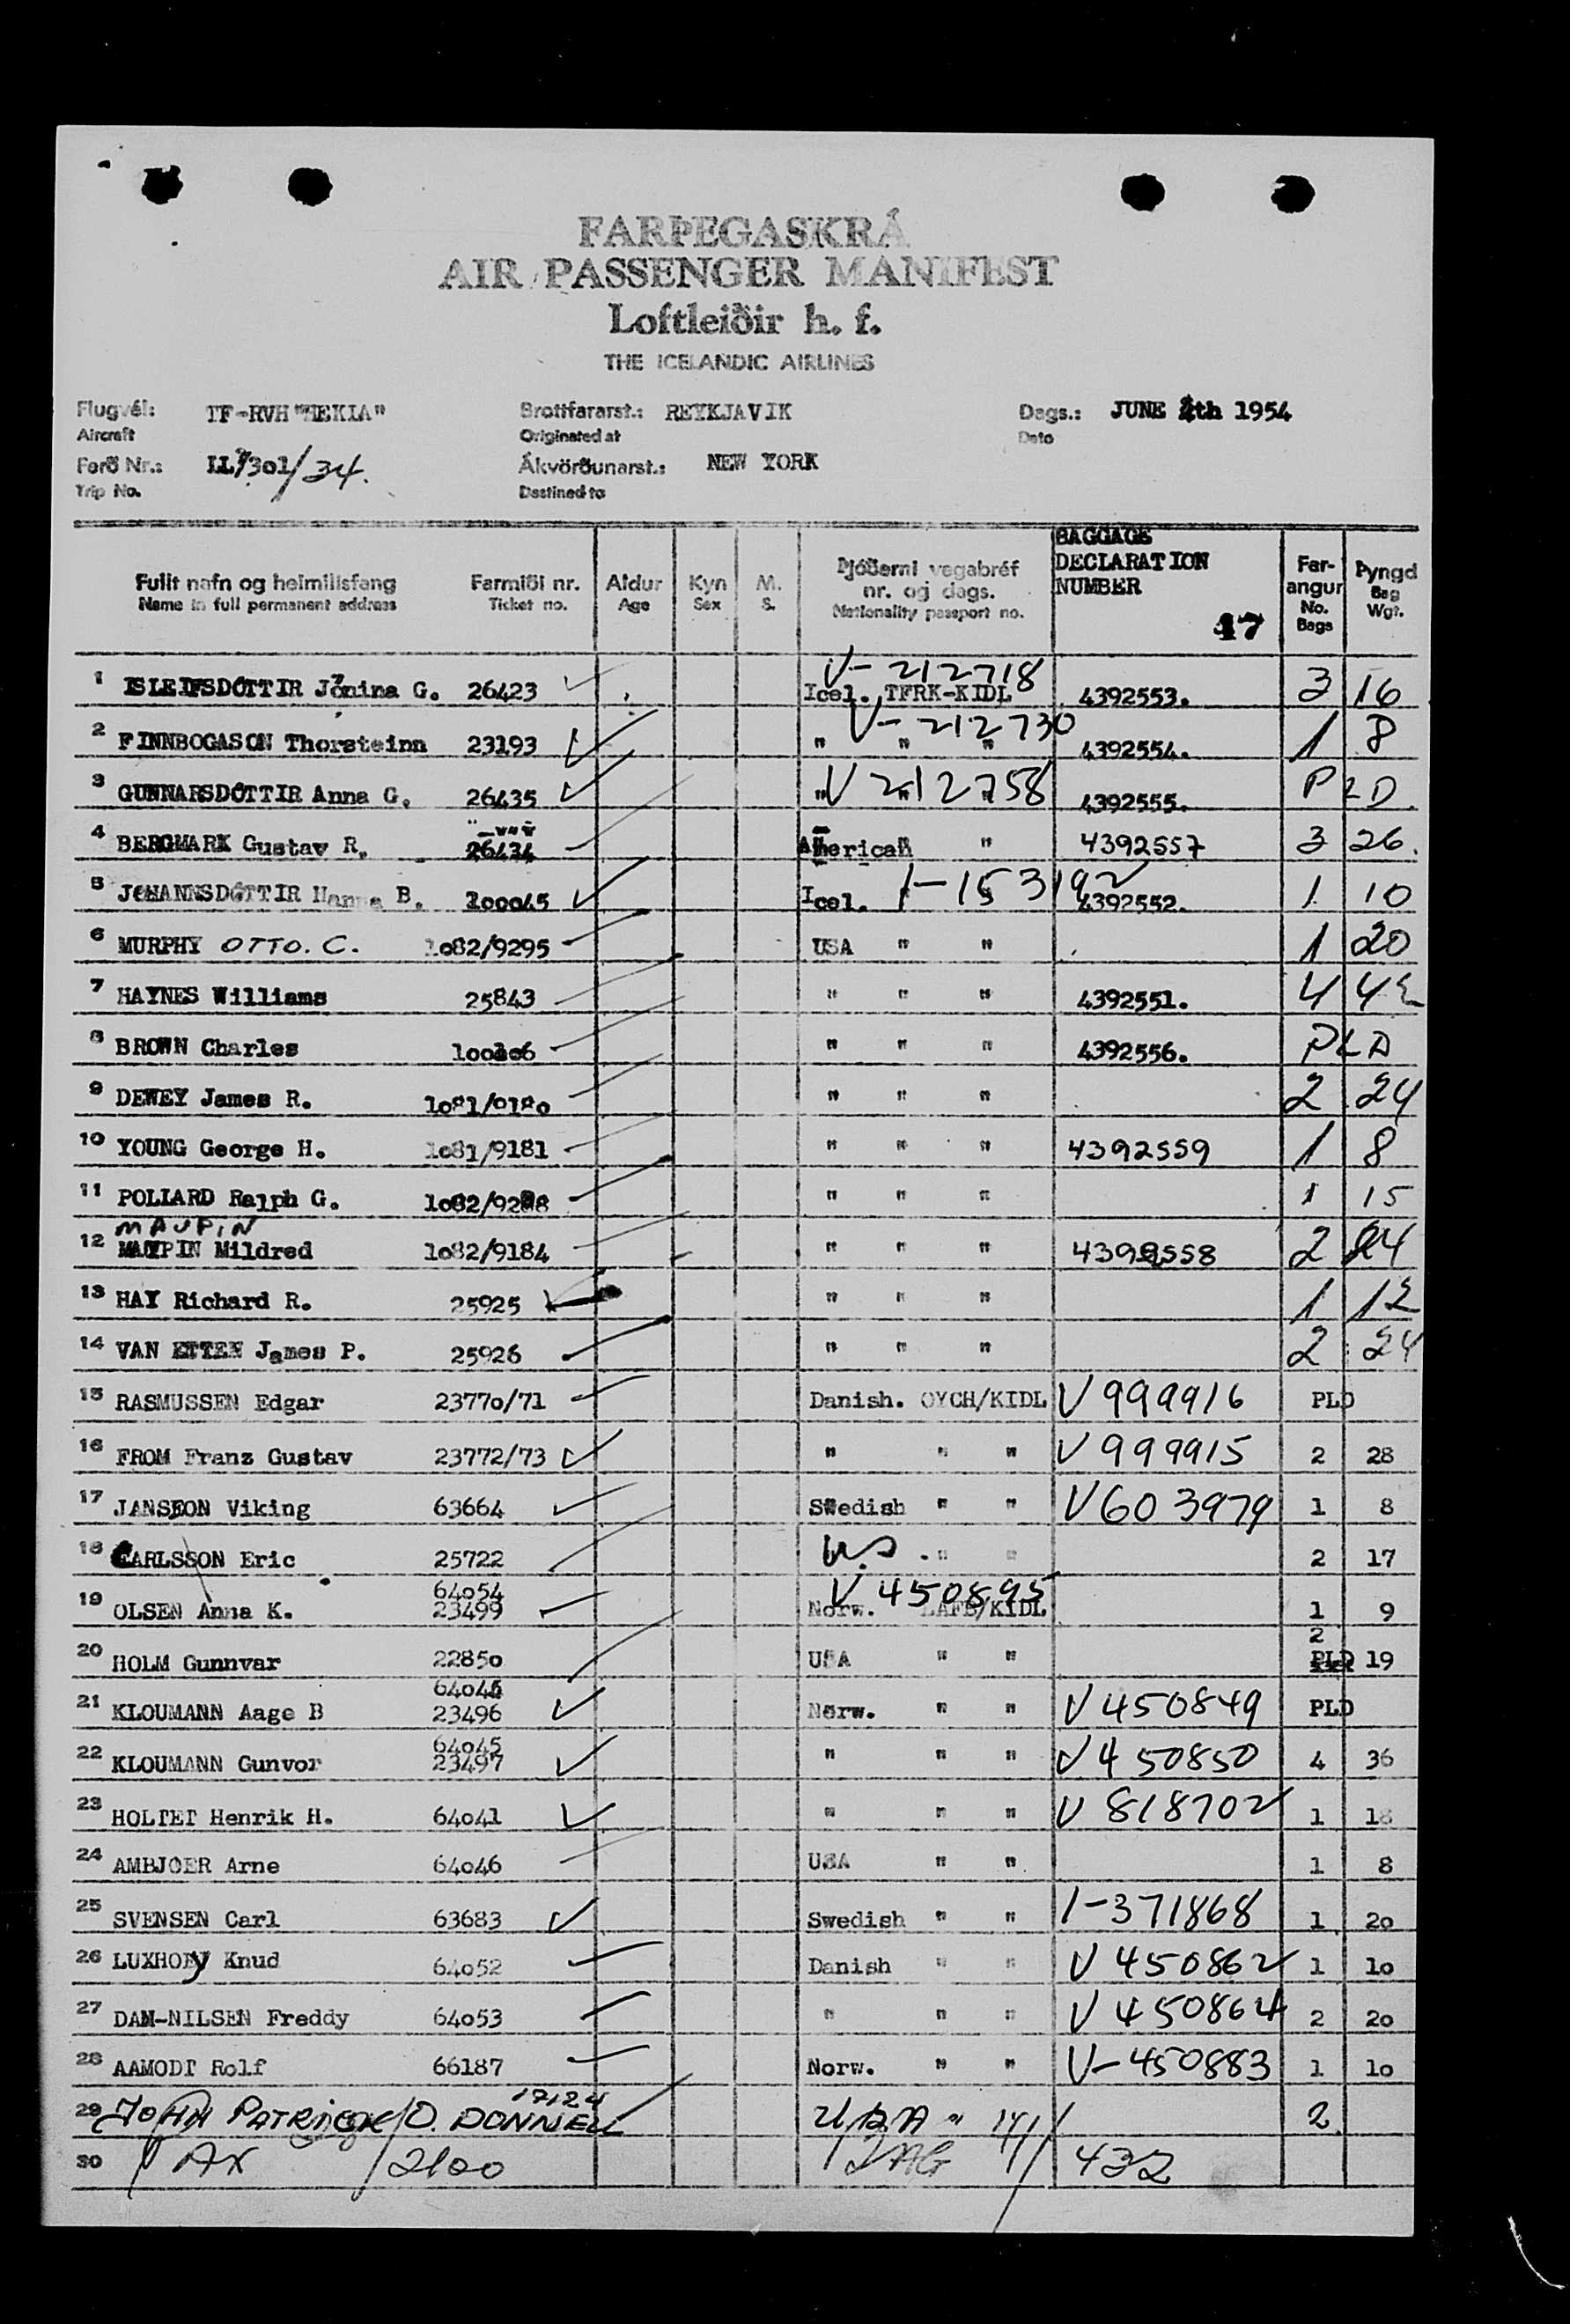 FARÞEGASKRÁ
AIR PASSENGER MANIFEST
Loftleiðir h. f.
THE ICELANDIC AIRLINES
Flugvél: TF-RVH "HEKLA" Brottfararst.: REYKJAVIK Dags.: JUNE 4th 1954
Aircraft Originated at Date
Ferð Nr.: LL/301/34. Ákvörðunarst.: NEW YORK
Trip No. Destined to
Fullt nafn og heimilisfang Farmiði nr. Aldur Kyn M. Þjóðerni vegabréf nr. og dags. BAGGAGE DECLARATION NUMBER Far-angur Þyngd
Name in full permanent address Ticket no. Age Sex S. Nationality passport no. 47 No. Bags Bag Wgt.
V-212718
1 ISLEIFSDÓTTIR Jónina G. 26423 Icel. TFRK-KIDL 4392553. 3 16
V-212730
2 FINNBOGASON Thorsteinn 23193 " " " 4392554. 1 8
V212758
3 GUNNARSDÓTTIR Anna G. 26435 " " " 4392555. PLD.
4 BERGMARK Gustav R. 26434 American " " 4392557 3 26.
1-153192
5 JOHANNSDÓTTIR Hanna B. 100045 Icel. 4392552. 1 10
6 MURPHY OTTO. C. 1082/9295 USA " " 1 20
7 HAYNES Williams 25843 " " " 4392551. 4 42
8 BROWN Charles " " " 4392556. PLD
9 DEWEY James R. 1081/9180 " " " 2 24
10 YOUNG George H. 1081/9181 " " " 4392559 1 8
11 POLLARD Ralph G. " " " 1 15
MAUPIN
12 MAUPIN Mildred 1082/9184 " " " 4392558 2 24
13 HAY Richard R. 25925 " " " 1 12
14 VAN ETTEN James P. 25926 " " " 2 24
15 RASMUSSEN Edgar 23770/71 Danish. OYCH/KIDL V999916 PLD
16 FROM Franz Gustav 23772/73 " " " V999915 2 28
17 JANSSON Viking 63664 Swedish " " V603979 1 8
18 CARLSSON Eric 25722 U.S. " " 2 17
64054 V450895
19 OLSEN Anna K. 23499 Norw. LAFB/KIDL 1 9
2
20 HOLM Gunnvar 22850 USA " " PLD 19
64044
21 KLOUMANN Aage B 23496 Norw. " " V450849 PLD
64045
22 KLOUMANN Gunvor 23497 " " " V450850 4 36
23 HOLTET Henrik H. 64041 " " " V818702 1 18
24 AMBJOER Arne 64046 USA " " 1 8
25 SVENSEN Carl 63683 Swedish " " 1-371868 1 20
26 LUXHOEY Knud 64052 Danish " " V450862 1 10
27 DAM-NILSEN Freddy 64053 " " " V450864 2 20
28 AAMODT Rolf 66187 Norw. " " V-450883 1 10
17124
29 JOHN PATRICK O. DONNELL USA " 2
30 AX 2100 432